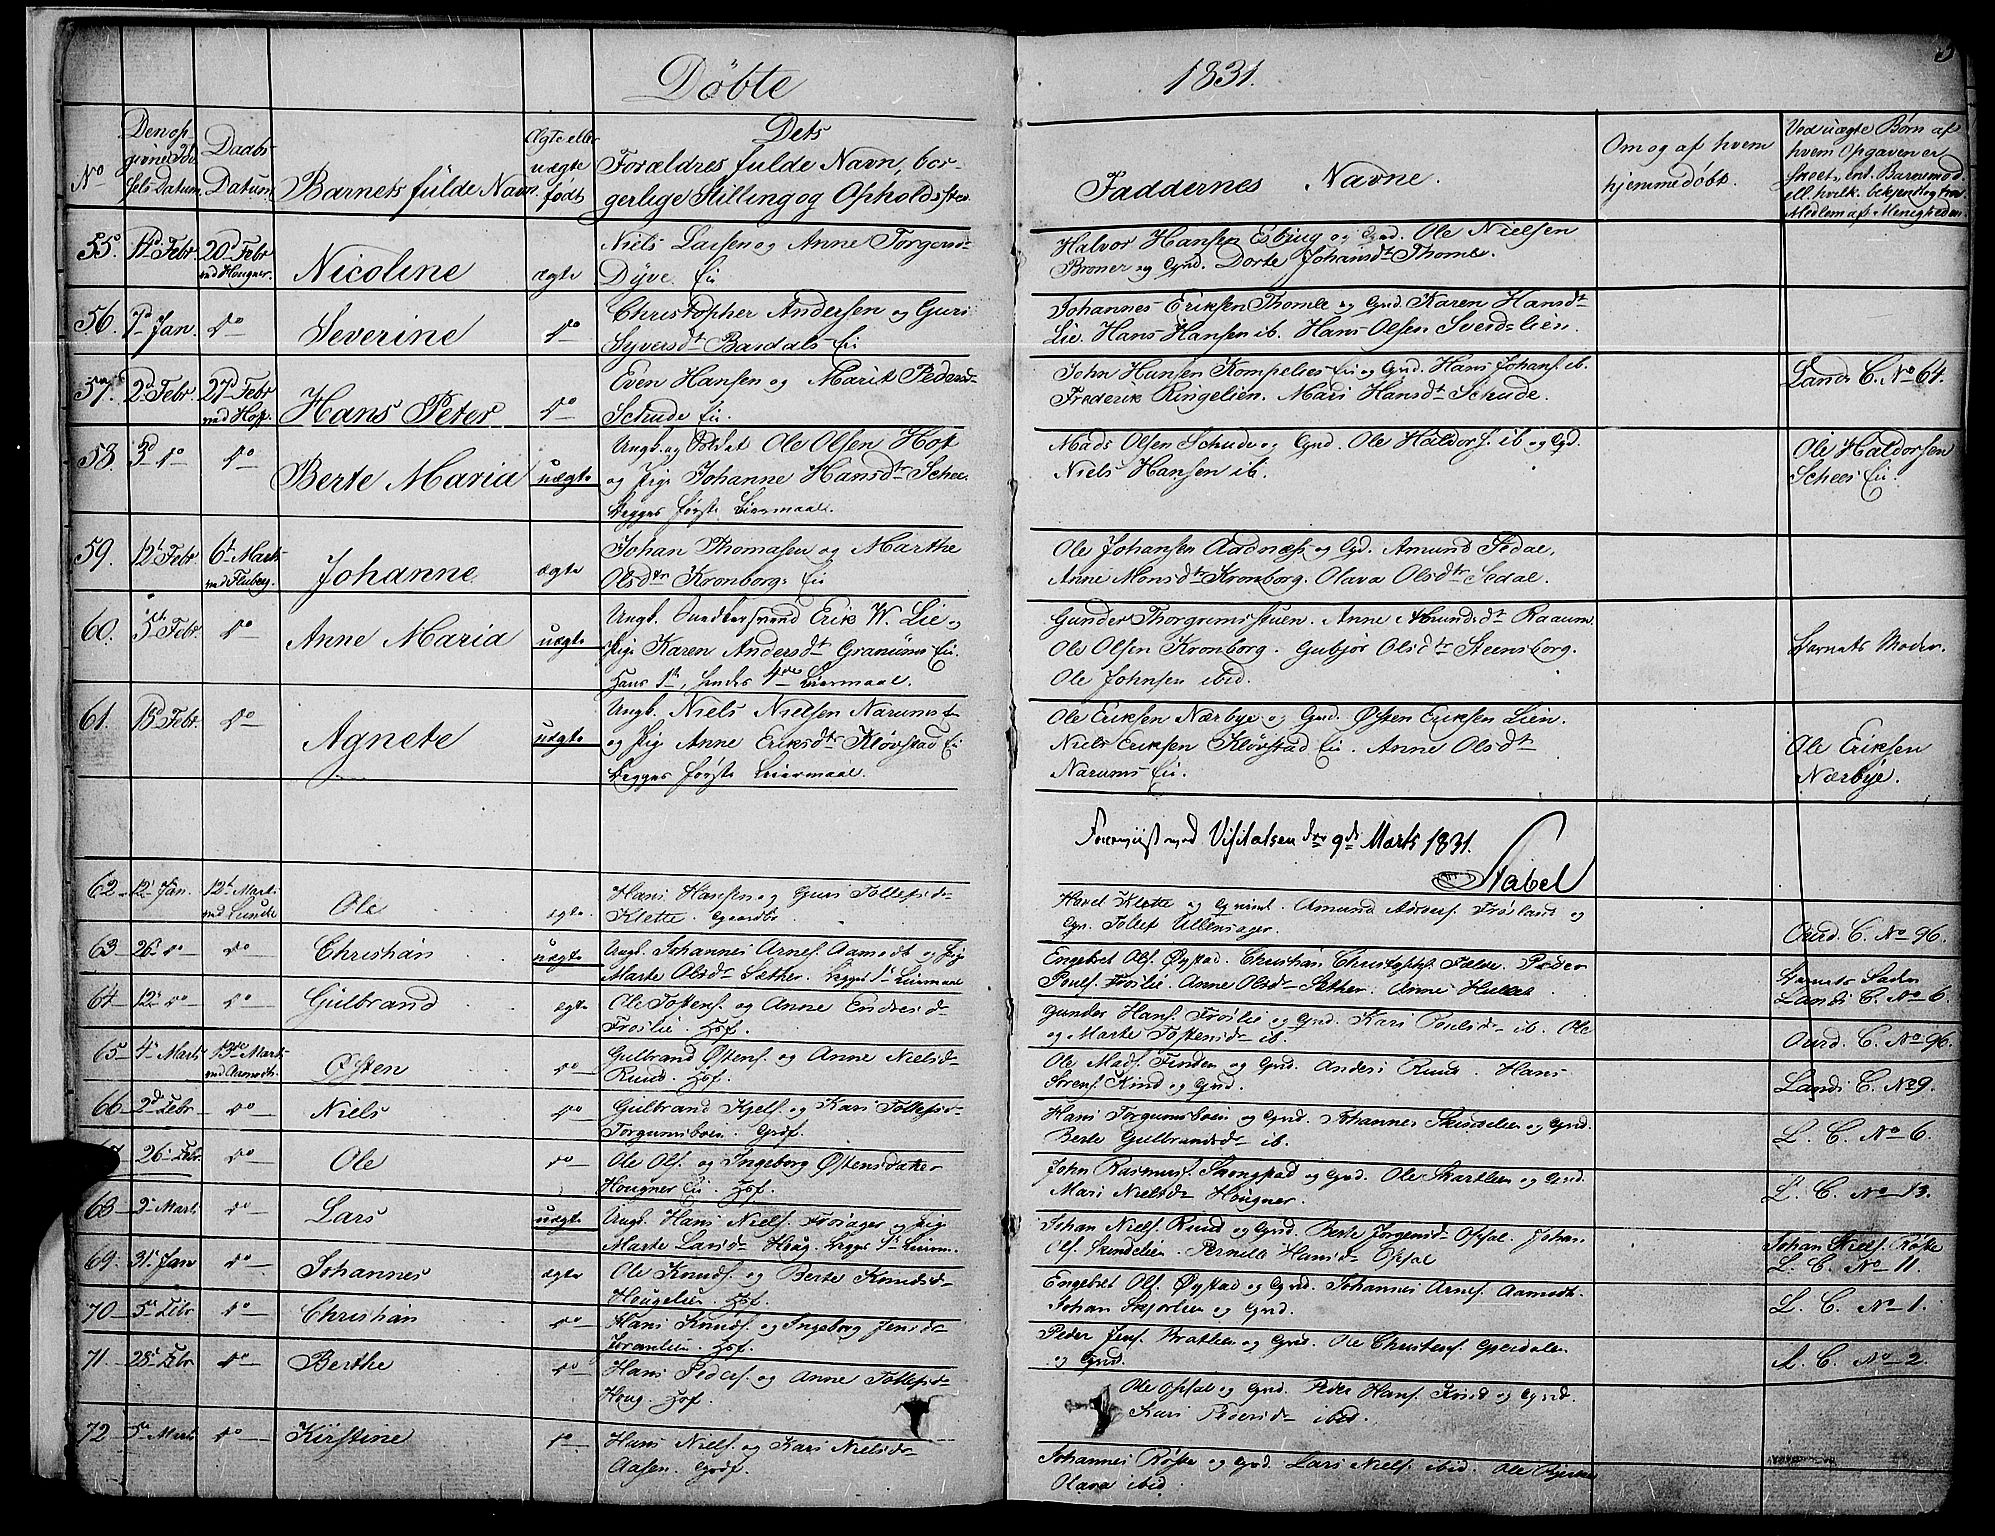 Døbte 1831.
5
No
Den opgivne Fødsels Datum,
Daabs Datum
Barnets fulde Navn
Ægte eller uægte født
Dets Forældres fulde Navn, borgerlige Stilling og Opholdssted
Faddernes Navne.
Om og af hvem hjemmedøbt.
Ved uægte Børn af hvem Opgaven er skeet, ent. Barnemod. ell. hvilk. bekjendt og trov. Medlem af Menigheden
55. 14d Febr. 20d Febr ved Hougner. Nicoline ægte
Niels Larsen og Anne Torgersd-
Dyve Ei
Halvor Hansen Esbjug og Qvd. Ole Nielsen
Broner og Qvnd. Dorte Johansdt Thomle.
56. 7d Jan. do Severine do
Christopher Andersen og Guri
Syversdt Bardals Ei
Johannes Eriksen Thomle og Qvd. Karen Hansdt
Lie. Hans Hansen ib. Hans Olsen Sverdslien.
57. 2d Febr. 27d Febr ved Hof. Hans Peter do
Even Hansen og Marit Pedersd-
Schude Ei.
John Hansen Kompelses Ei og Qvd. Hans Johans. ib.
Frederik Ringelien. Mari Hansdt Schude.
Lands C. No 64.
58. 3d do do Berte Maria uægte
Ungk. og Soldat Ole Olsen Hof
og Pige Johanne Hansdt Schee.
Begges første Leiermaal.
Mads Olsen Schude og Qvnd. Ole Haldors. ib og Qd.
Niels Hansen ib.
Ole Haldorsen
Schees Ei.
59. 12t Febr. 6t Marts ved Fluberg. Johanne ægte
Johan Thomasen og Marthe
Olsdtr Kronborgs Ei
Ole Johansen Aadnæs og Qd. Amund Sedal,
Anne Monsdtr Kronborg. Olava Olsdtr Sedal.
60. 5t Febr. do Anne Maria uægte
Ungk. Sundbersmand Erik W. Lie og
Pige Karen Andersdt Granums Ei.
Hans 1t, hendes 1ste Leiermaal.
Gunder Thorgrimsstuen. Anne Amundsdt Raaum.
Ole Olsen Kronborg. Gubjør Olsdtr Steensborg.
Ole Johnsen ibid.
Barnets Moder.
61. 13d Febr. do Agnete uægte
Ungk. Niels Nielsen Narums Ei
og Pige Anne Eriksdtr Kløvstad Ei
Begges første Leiermaal.
Ole Eriksen Nærbye og Qvd. Østen Eriksen Lien.
Niels Eriksen Kløvstad Ei. Anne Olsdt
Narums Ei.
Ole Eriksen
Nærbye.
Foreviist ved Visitatsen den 9de Marts 1831.
Stabel
62 12t Jan. 12t Marts ved Lunde Ole ægte
Hans Hansen og Guri Tollefsd-
Klette. Gaardbr.
Havel Klette og Qvind. Amund Anders. Frøsland og
Qv. Tollef Ullensager.
Aurd. C. No 96.
63 26. do do Christian uægte
Ungk. Johannes Arnes. Aamodt og Pige
Marte Olsdr Sæther. Begges 1t Leiermaal
Engebret Ols. Øystad. Christian Christophs. Felde. Peder
Pouls. Frøslie. Anne Olsdr Sæther. Anne Hullet.
Barnets Fader
Lands C. No 6.
64 12t do do Gulbrand ægte
Ole Tostens. og Anne Endresd-
Frøslie. Hsf.
Gunder Hans. Frøslie og Qvnd. Kari Poulsdr ib. Ole
og Marte Tostensdr ib.
Aurd. C. No 96.
65 4t Marts 13de Marts ved Aamodt. Østen do
Gulbrand Østens. og Anne Nielsdr
Ruud. Hsf.
Ole Mads. Finden og Qvnd. Anders Ruud. Hans
Sørens. Kind og Qvnd.
Lands C. No 9.
66 2d Febr. do Niels do
Gulbrand Kjels. og Kari Tollefsdr
Torgumsboen. Grdf.
Hans Torgumsboen og Qvnd. Johannes Skindelien og Qvnd.
Berte Gulbrandsdr ib.
L. C. No 6.
26. Febr. do Ole do
Ole Ols. og Ingeborg Østensdatter
Hougner Ei. Hsf.
John Rasmus. Svingstad og Qvnd. Ole Skartlien og Qvnd.
Mari Nielsdr Hougner.
L. C. No 13.
68 2. Marts do Lars uægte
Ungk. Hans Niels. Frøsager og Pige
Marte Larsdr Houg. Begges 1t Leierm.
Johan Niels. Ruud og Qvnd. Berte Jørgensdr Opsal. Johan
Ols. Skindelien. Pernille Hansdr Opsal
Johan Niels. Røste
L. C. No 11.
69. 31t Jan do Johannes ægte
Ole Knuds. og Berte Knudsdr
Hougelien. Hsf.
Engebret Ols. Øystad og Qvnd. Johannes Arnes. Aamodt.
Johan Skjørlien og Qvnd.
L. C. No 1.
70 5te Febr. do Christian do
Hans Knuds. og Ingeborg Jensdr
Joranlien. Hsf.
Peder Jens. Bratlien og Qvnd. Ole Christens. Gjerdalen
og Qvnd.
L. C. No 2.
71 28. Febr. do Berthe do
Hans Peders. og Anne Tollefsdr
Houg. Hsf.
Ole Opsal og Qvnd. Peder Hans. Kind og Qvnd.
Kari Pedersdr ibid.
72 5te Marts do Kirstine do
Hans Niels. og Kari Nielsdr
Aasen. Grdf.
Johannes Røste og Qvd. Lars Niels. ibid. Ole Bjerke
Olava ibid.